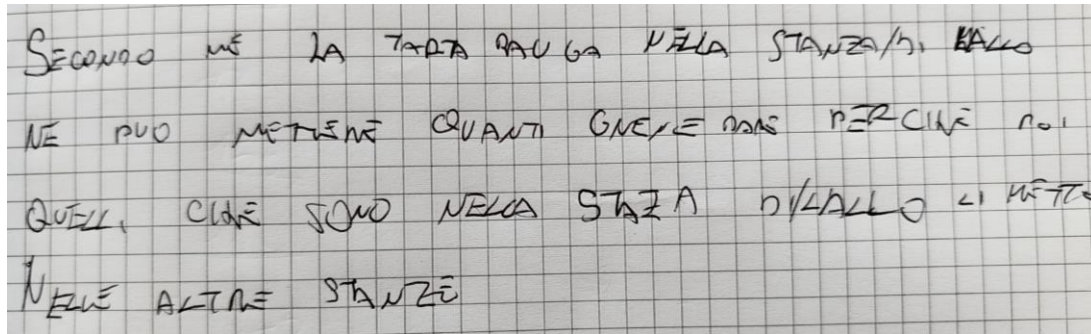 SECONDO ME LA TARTA RAUGA NELLA STANZA/DI LALLO
NE PUO METTERE QUANTI GNENE PARE PERCHE POI
QUELLI CHE SONO NELLA STAZA DI LALLO LI METTE
NELLE ALTRE STANZE